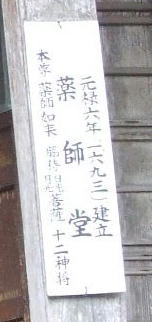 元禄六年(一六九三)建立
薬師堂
本尊 薬師如来 脇侍日光月光菩薩 十二神将